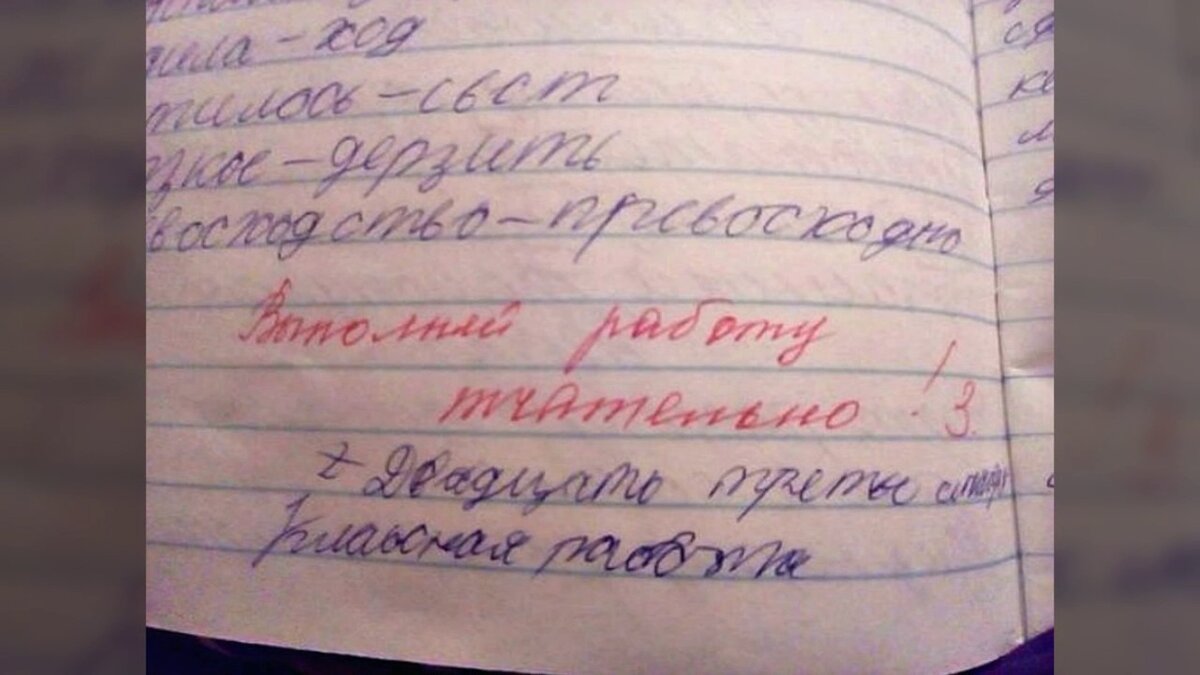 – ход
тилось – свст
зкое – дерзить
восходство – превосходно
Выполняй работу
тчательно! 3.
Двадцать третье
Классная работа